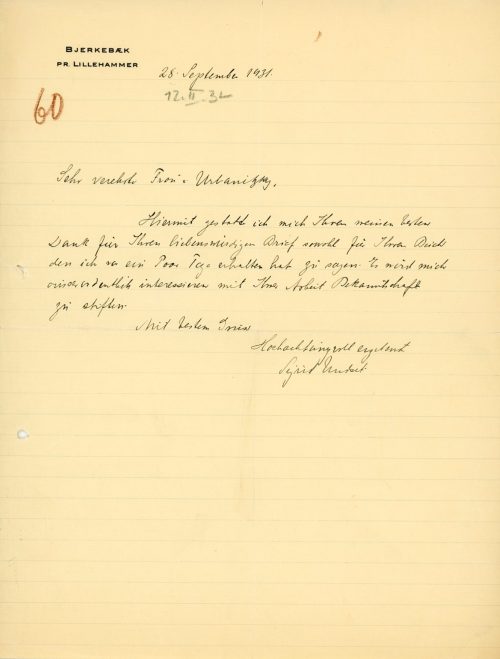 BJERKEBÆK
PR. LILLEHAMMER
28. September 1931.
12.II.32
60
Sehr verehrte Frau Urbanitzky,
Hiermit gestatte ich mich Ihnen meinen besten
Dank für Ihren liebenswürdigen Brief sowohl für Ihren Buch
den ich vor ein Paar Tage erhalten hat zu sagen. Es wird mich
ausserordentlich interessieren mit Ihrer Arbeit Bekanntschaft
zu stiften.
Mit bestem Gruss
Hochachtungsvoll ergebenst
Sigrid Undset